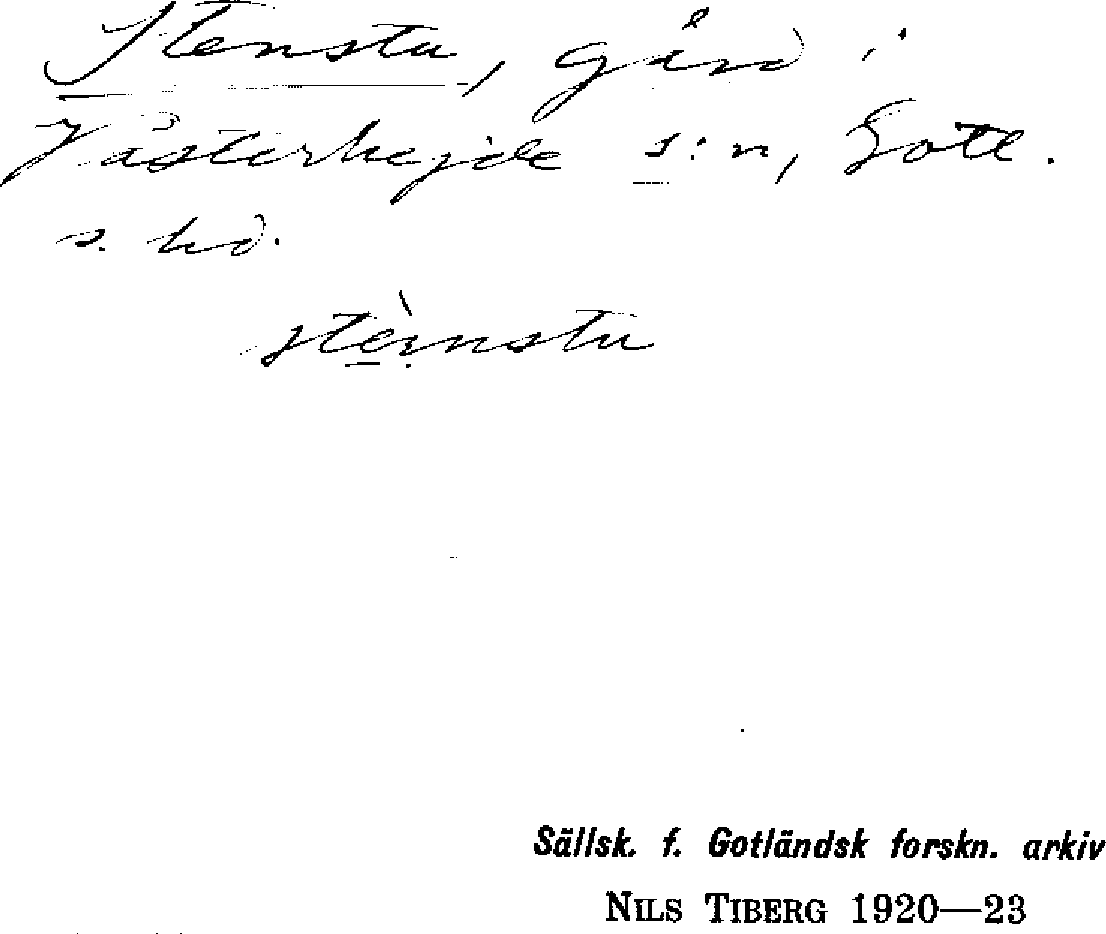 Stenstu, gård i
Västerhejde s:n, Gotl.
s. hd.
stèinstu
Sällsk. f. Gotländsk forskn. arkiv
NILS TIBERG 1920—23